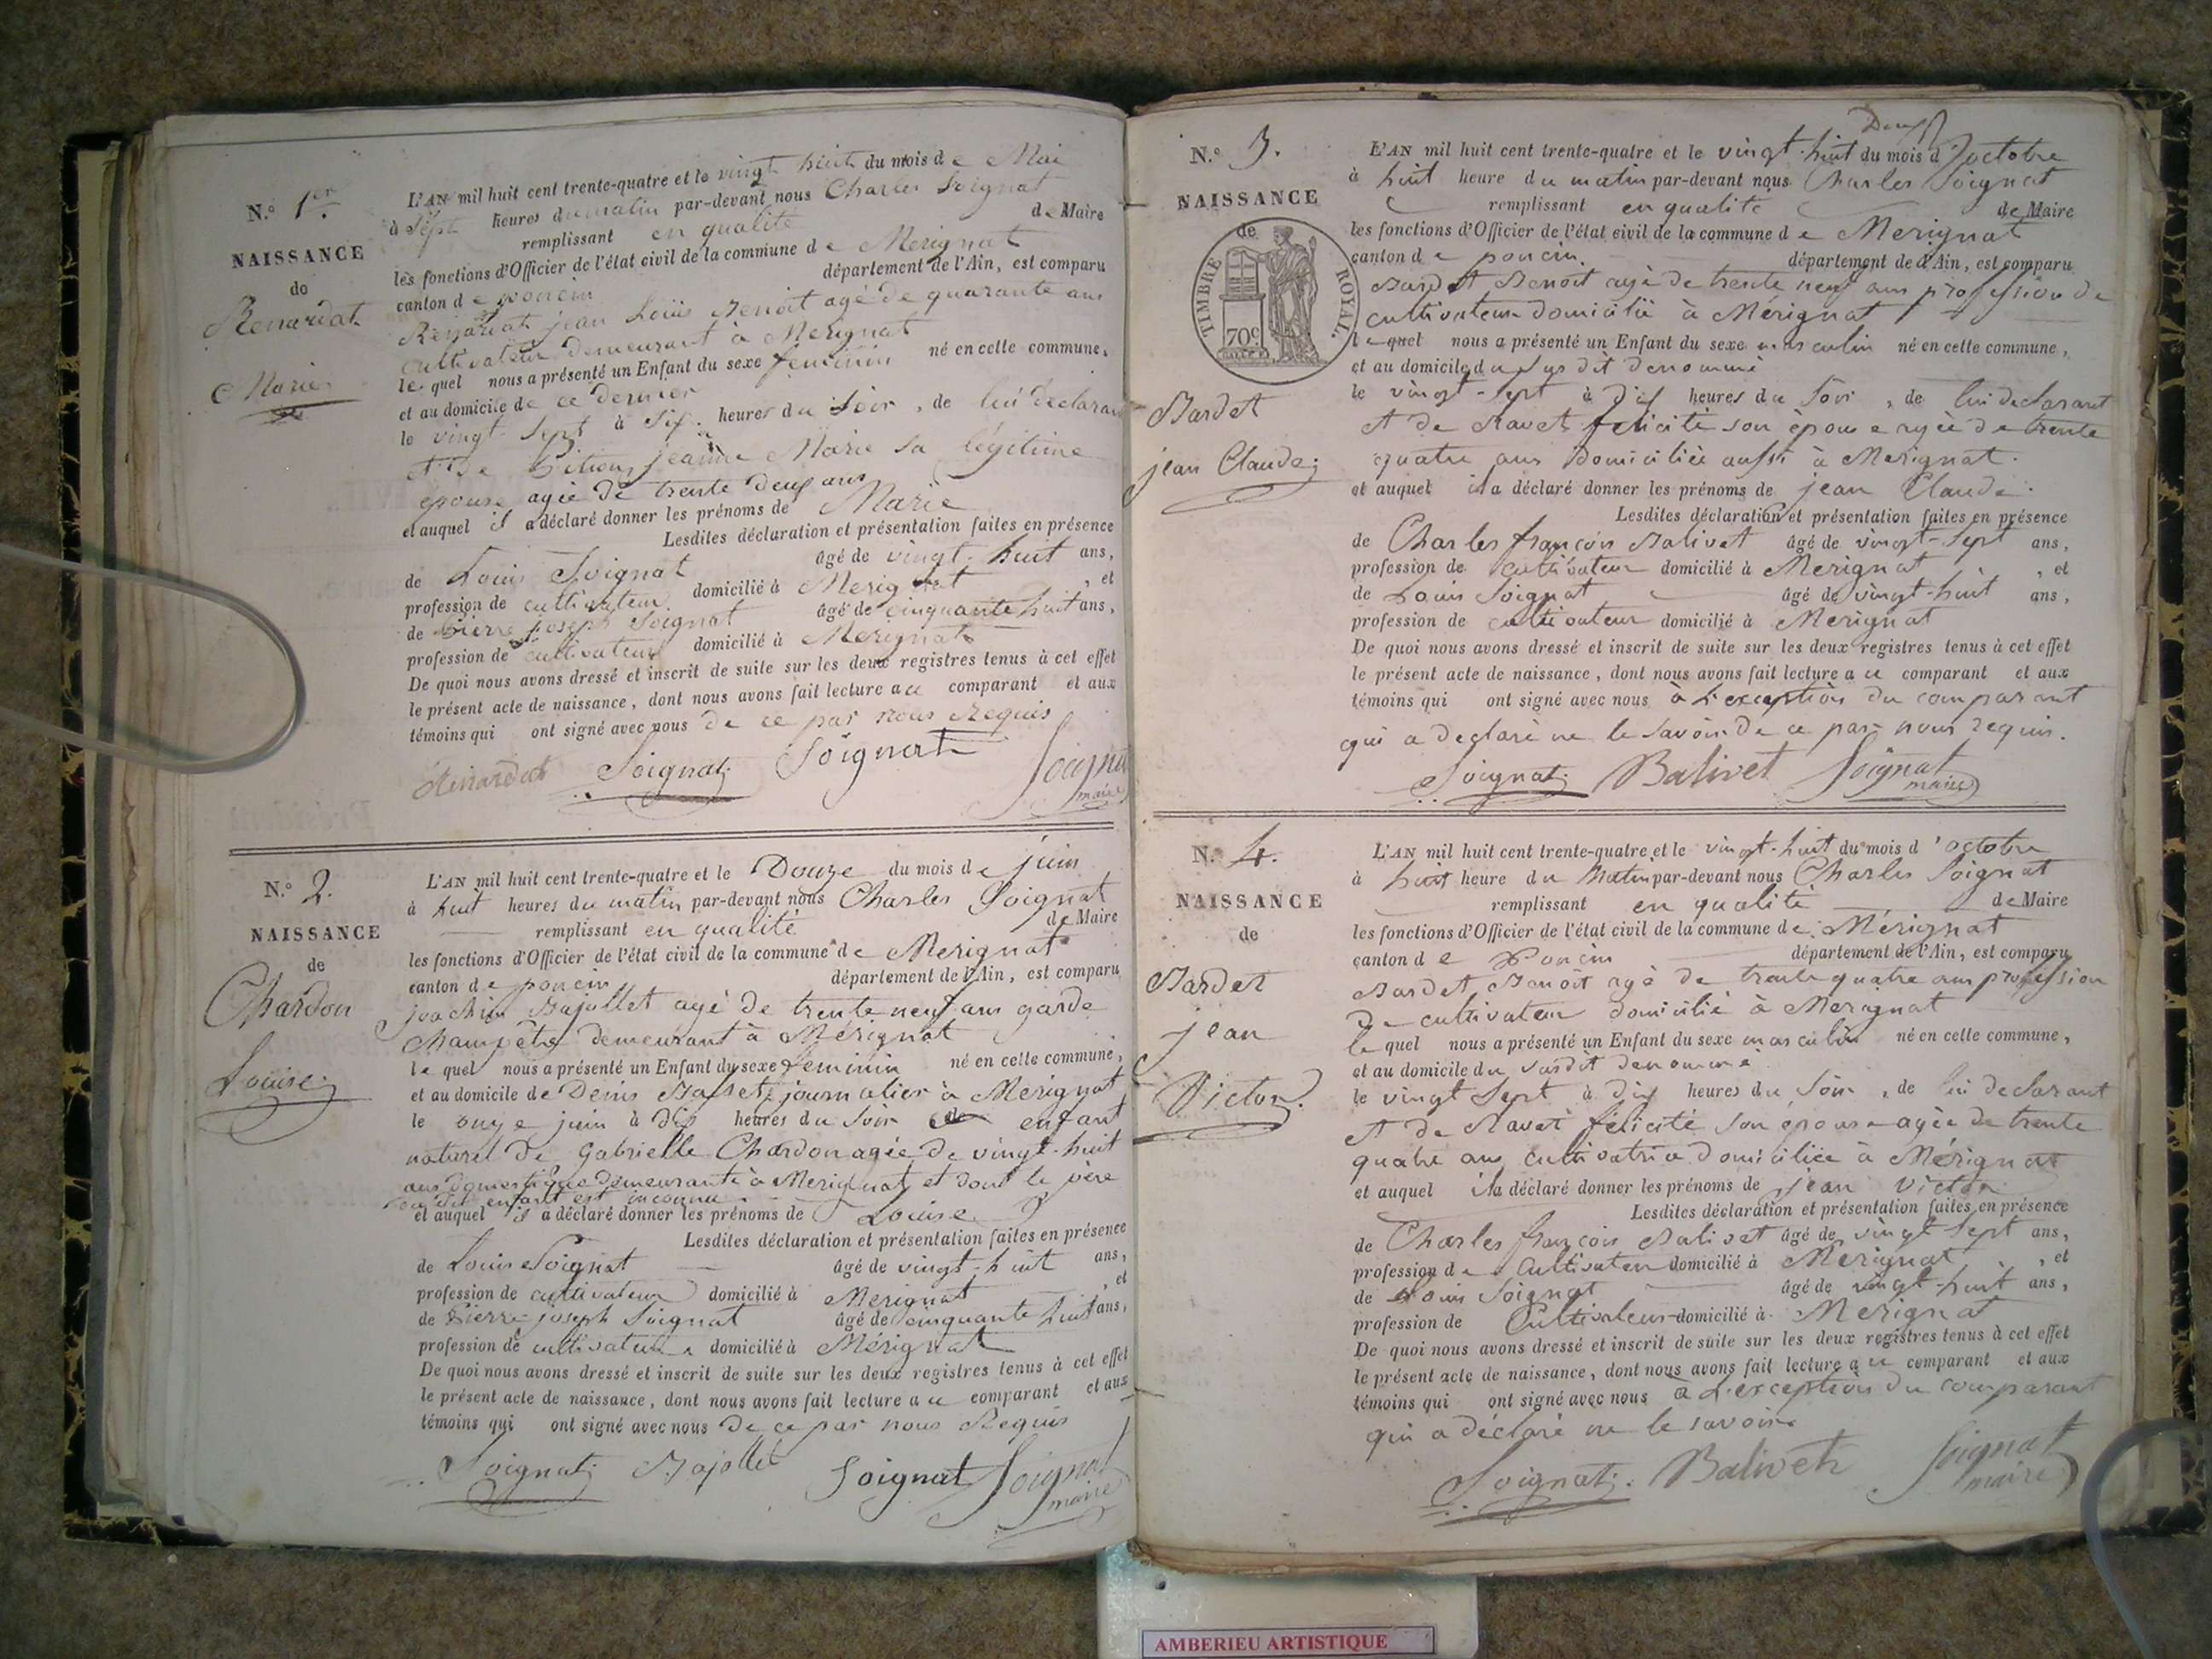 N.º 1er.
NAISSANCE
de
Renardat
Marie
L'AN mil huit cent trente-quatre et le vingt huit du mois de Mai
à Sept heures du matin par-devant nous Charles Soignat
remplissant en qualité de Maire
les fonctions d'Officier de l'état civil de la commune de Merignat
canton de poncin département de l'Ain, est comparu
Renardat jean Louis Benoit agé de quarante ans
cultivateur demeurant à Merignat
lequel nous a présenté un Enfant du sexe feminin né en cette commune,
et au domicile de ce dernier
le vingt Sept à Six heures du Soir, de lui déclarant
et de jeanne Marie sa légitime
epouse agée de trente deux ans
et auquel il a déclaré donner les prénoms de Marie
Lesdites déclaration et présentation faites en présence
de Louis Soignat âgé de vingt-huit ans,
profession de cultivateur domicilié à Merignat, et
de Pierre joseph Soignat âgé de cinquante huit ans,
profession de cultivateur domicilié à Merignat
De quoi nous avons dressé et inscrit de suite sur les deux registres tenus à cet effet
le présent acte de naissance, dont nous avons fait lecture a ce comparant et aux
témoins qui ont signé avec nous de ce par nous Requis
Renardat Soignat Soignat Soignat
maire
N.º 2.
NAISSANCE
de
Chardon
Louise
L'AN mil huit cent trente-quatre et le Douze du mois de juin
à huit heures du matin par-devant nous Charles Soignat
remplissant en qualité de Maire
les fonctions d'Officier de l'état civil de la commune de Merignat
canton de poncin département de l'Ain, est comparu
joachim Bajollet agé de trente neuf ans garde
champêtre demeurant à Mérignat
lequel nous a présenté un Enfant du sexe feminin né en cette commune,
et au domicile de Denis journalier à Merignat
le onze juin à dix heures du Soir de enfant
naturel de Gabrielle Chardon agée de vingt-huit
ans domestique demeurante à Merignat et dont le père
du dit enfant est inconnu
et auquel il a déclaré donner les prénoms de Louise
Lesdites déclaration et présentation faites en présence
de Louis Soignat âgé de vingt-huit ans,
profession de cultivateur domicilié à Merignat, et
de Pierre joseph Soignat âgé de cinquante huit ans,
profession de cultivateur domicilié à Mérignat
De quoi nous avons dressé et inscrit de suite sur les deux registres tenus à cet effet
le présent acte de naissance, dont nous avons fait lecture a ce comparant et aux
témoins qui ont signé avec nous de ce par nous Requis
Soignat Bajollet Soignat Soignat
maire
N.º 3.
NAISSANCE
de
TIMBRE ROYAL
70c
Bardet
jean Claude
L'AN mil huit cent trente-quatre et le vingt-huit du mois d'octobre
à huit heure du matin par-devant nous Charles Soignat
remplissant en qualité de Maire
les fonctions d'Officier de l'état civil de la commune de Merignat
canton de poncin département de l'Ain, est comparu
Bardet Benoit agé de trente neuf ans profession de
cultivateur domicilié à Mérignat
lequel nous a présenté un Enfant du sexe masculin né en cette commune,
et au domicile du sus dit denommé
le vingt-sept à dix heures du Soir, de lui declarant
et de Ravet felicité son épouse agée de trente
quatre ans domiciliée aussi à Merignat.
et auquel il a déclaré donner les prénoms de jean Claude.
Lesdites déclaration et présentation faites en présence
de Charles françois Balivet âgé de vingt-sept ans,
profession de cultivateur domicilié à Merignat, et
de Louis Soignat âgé de vingt-huit ans,
profession de cultivateur domicilié à Merignat
De quoi nous avons dressé et inscrit de suite sur les deux registres tenus à cet effet
le présent acte de naissance, dont nous avons fait lecture a ce comparant et aux
témoins qui ont signé avec nous à l'exception du comparant
qui a declaré ne le savoir de ce par nous requis.
Soignat Balivet Soignat
maire
N.º 4.
NAISSANCE
de
Bardet
jean
Victor.
L'AN mil huit cent trente-quatre et le vingt-huit du mois d'octobre
à huit heure du Matin par-devant nous Charles Soignat
remplissant en qualité de Maire
les fonctions d'Officier de l'état civil de la commune de Mérignat
canton de Poncin département de l'Ain, est comparu
Bardet Benoit agé de trente quatre ans profession
de cultivateur domicilié à Merignat
lequel nous a présenté un Enfant du sexe masculin né en cette commune,
et au domicile du susdit denommé
le vingt Sept à dix heures du Soir, de lui declarant
et de Ravet félicité son épouse agée de trente
quatre ans cultivatrice domiciliée à Mérignat
et auquel il a déclaré donner les prénoms de jean Victor
Lesdites déclaration et présentation faites en présence
de Charles françois Balivet âgé de vingt Sept ans,
profession de Cultivateur domicilié à Merignat, et
de Louis Soignat âgé de vingt-huit ans,
profession de Cultivateur domicilié à Merignat
De quoi nous avons dressé et inscrit de suite sur les deux registres tenus à cet effet
le présent acte de naissance, dont nous avons fait lecture a ce comparant et aux
témoins qui ont signé avec nous à l'exception du comparant
qui a déclaré ne le savoir
Soignat Balivet Soignat
maire
AMBERIEU ARTISTIQUE